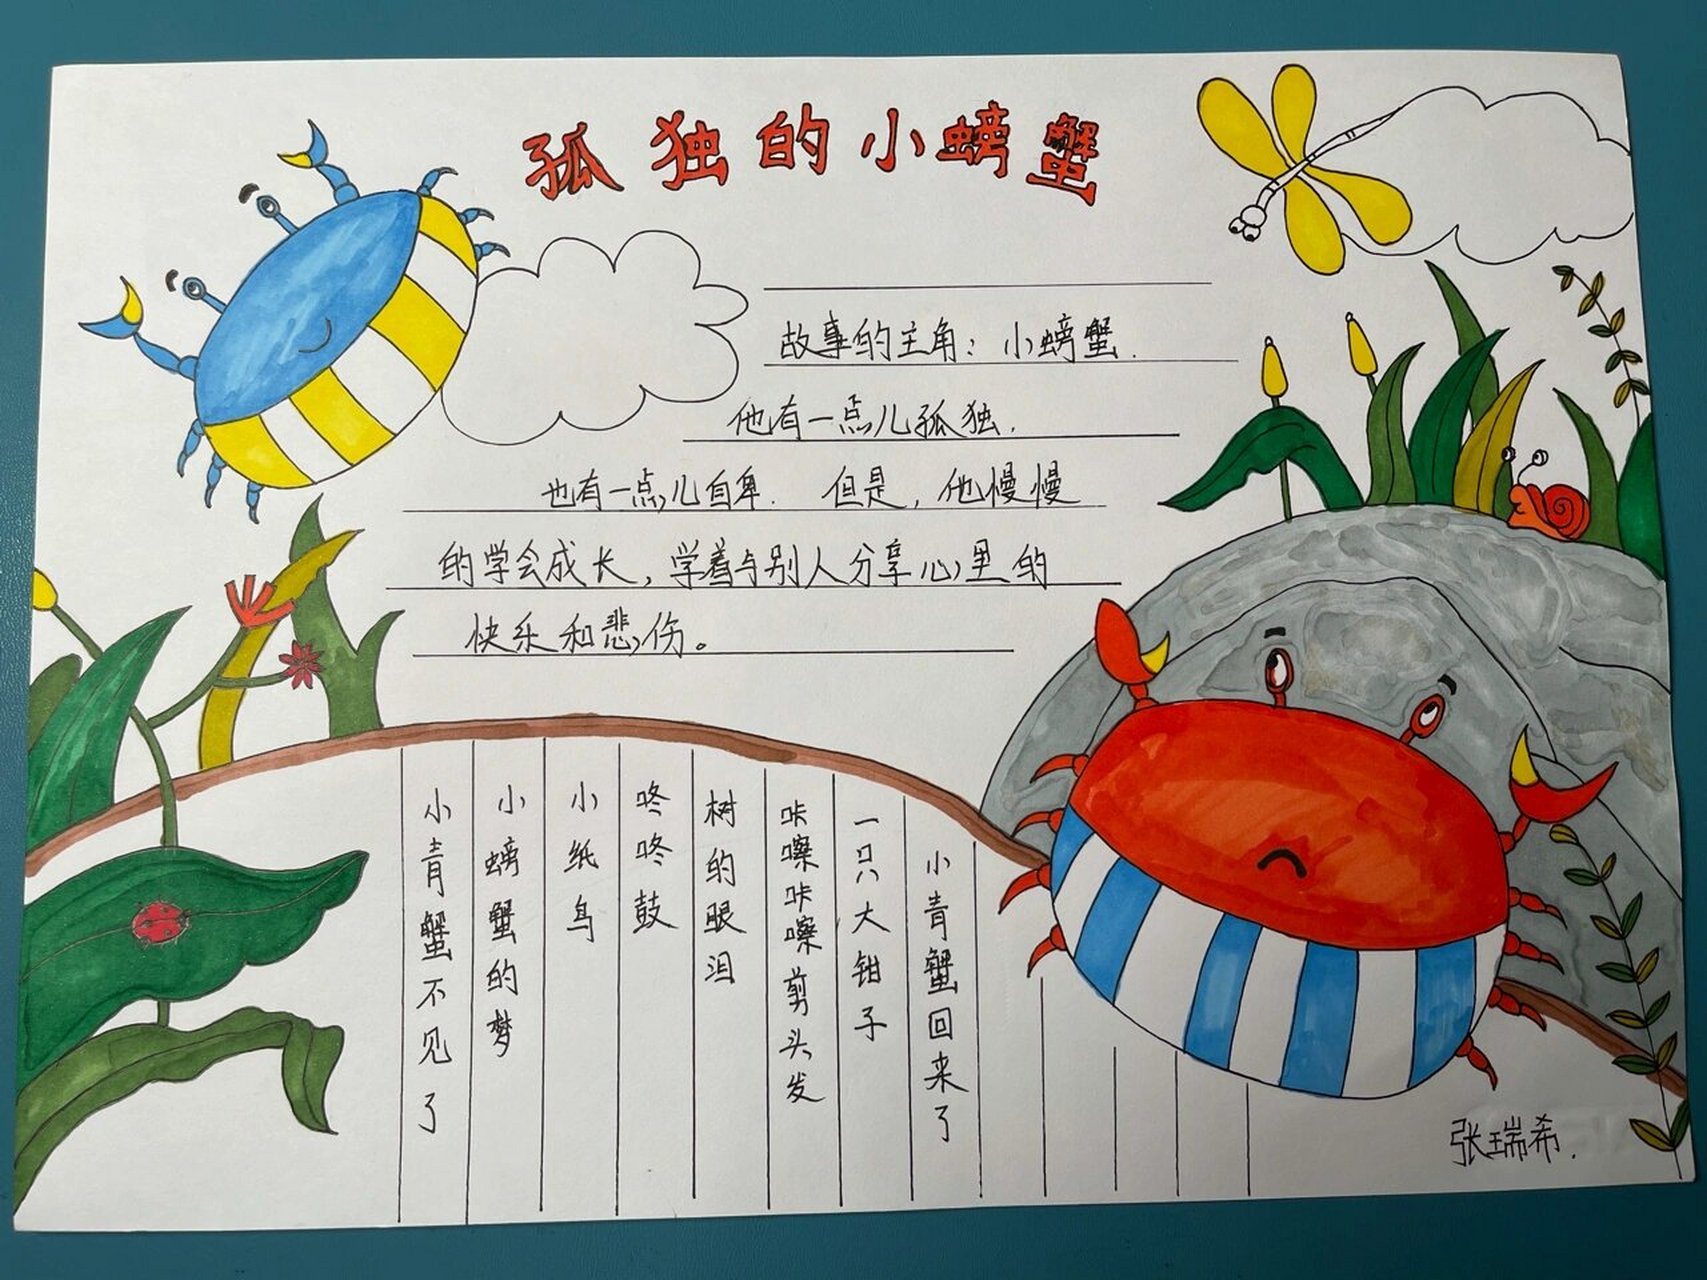 孤独的小螃蟹
故事的主角：小螃蟹.
他有一点儿孤独.
也有一点儿自卑. 但是，他慢慢
的学会成长，学着与别人分享心里的
快乐和悲伤。
小青蟹不见了
小螃蟹的梦
小纸鸟
咚咚鼓
树的眼泪
咔嚓咔嚓剪头发
一只大钳子
小青蟹回来了
张瑞希.